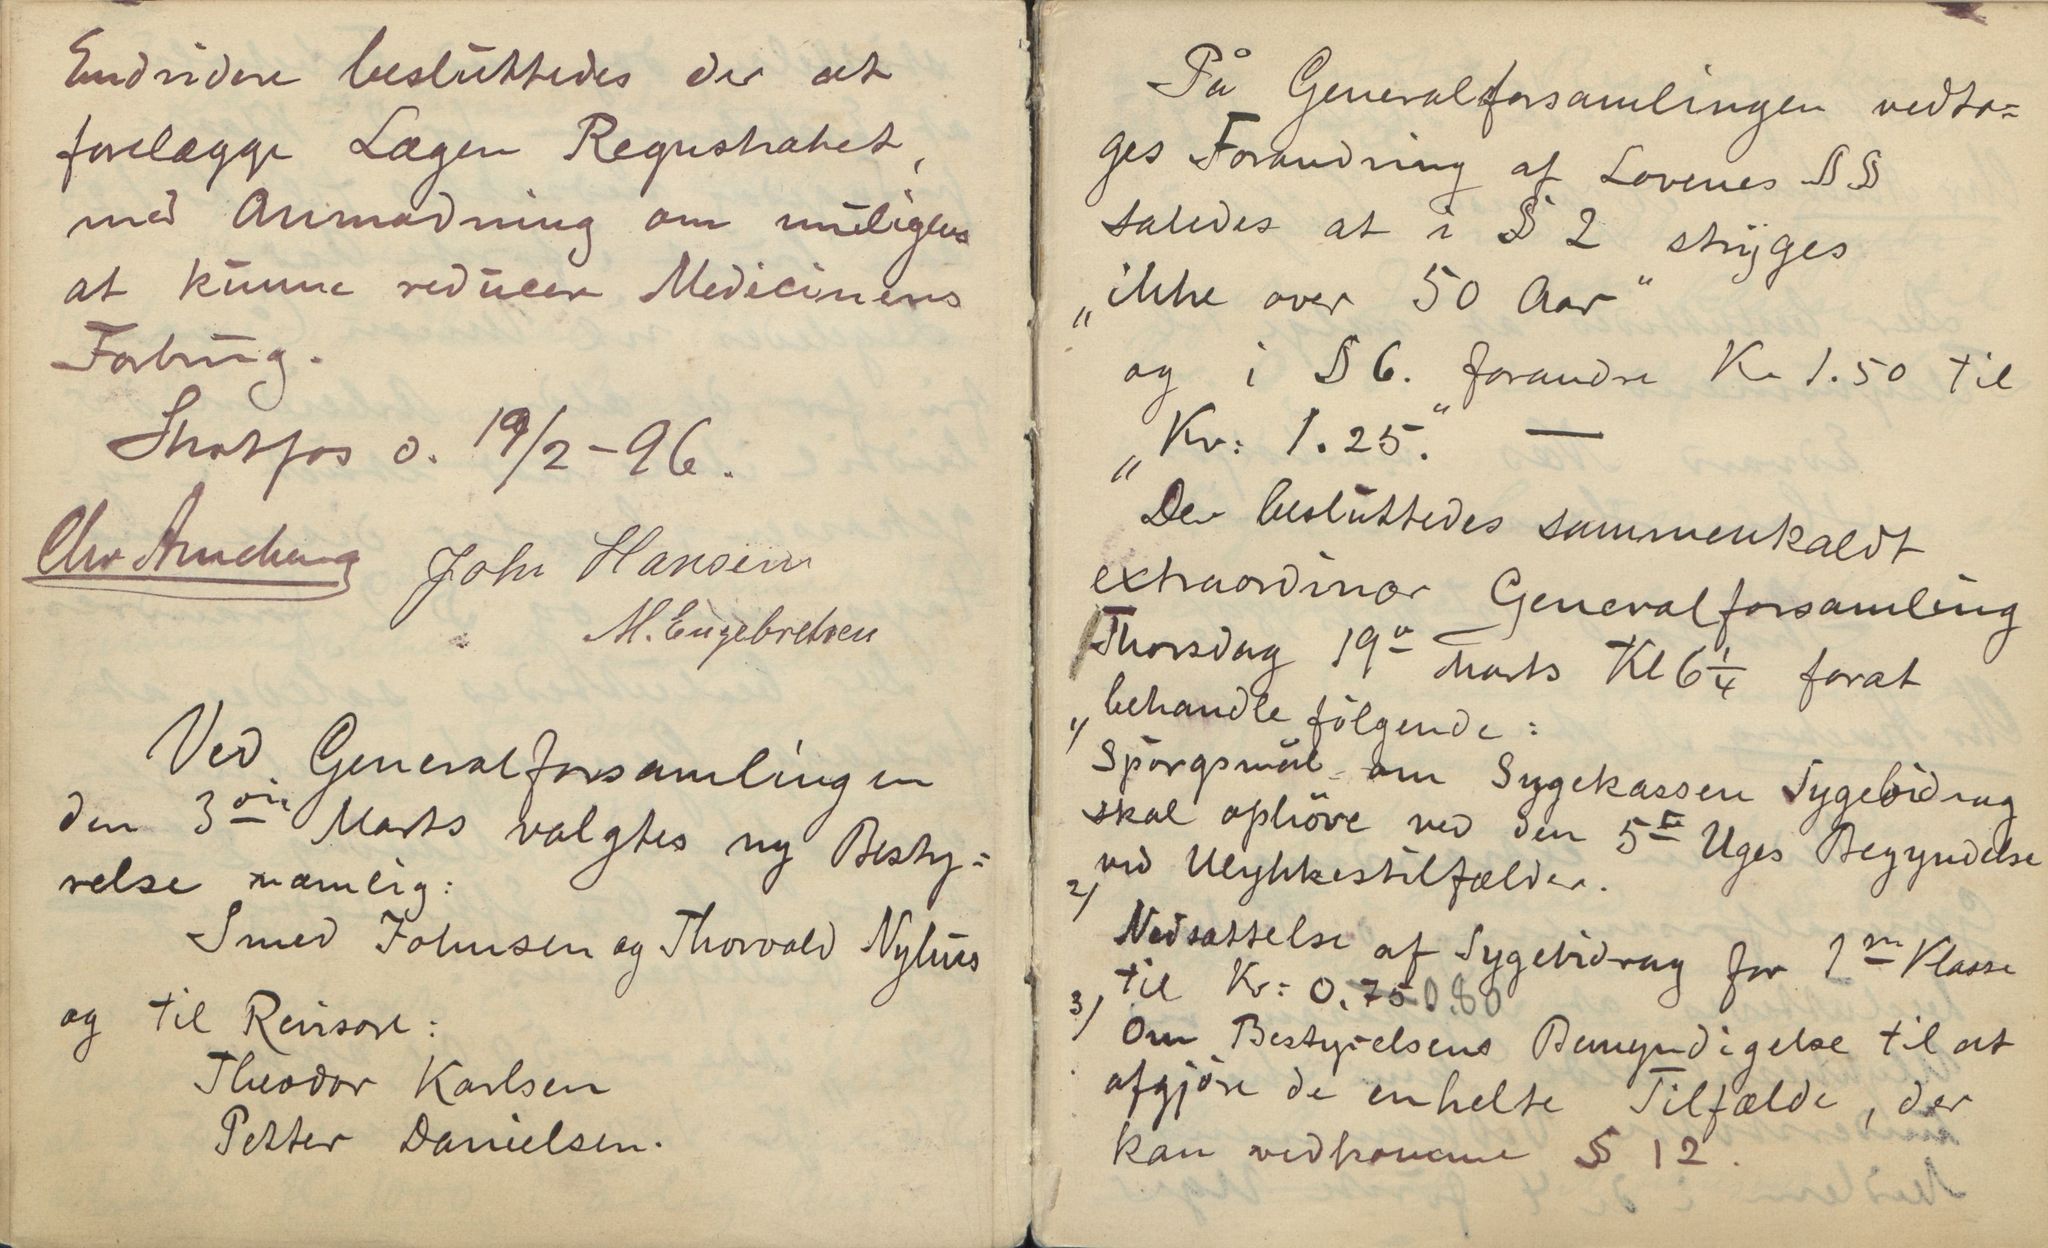 Endvidere besluttedes der at
forelægge Lægen Regnskabet,
med Anmodning om muligens
at kunne reducere Medicinens
Forbrug.
Skotfos d. 19/2-96.
John Hansen
M. Engebretsen
Ved Generalforsamlingen
den 3die Marts valgtes ny Besty-
relse næmlig:
Smed Johnsen og Thorvald Nyhus
og til Revisore:
Theodor Karlsen
Petter Danielsen.
På Generalforsamlingen vedto-
ges Forandring af Lovenes §§
saledes at i § 2 stryges
„ikke over 50 Aar“
og i § 6. forandre Kr 1.50 til
„Kr: 1.25.“ —
Der besluttedes sammenkaldt
extraordinær Generalforsamling
Thorsdag 19de Marts Kl 6 1/4 forat
behandle følgende:
1) Spörgsmål om Sygekassen Sygebidrag
skal ophöve ved den 5te Uges Begyndelse
ved Ulykkestilfælder.
2) Nedsættelse af Sygebidrag for 1ste Klasse
til Kr: 0.75 0.80
3) Om Bestyrelsens Bemyndigelse til at
afgjöre de enkelte Tilfælde, der
kan vedkomme § 12.